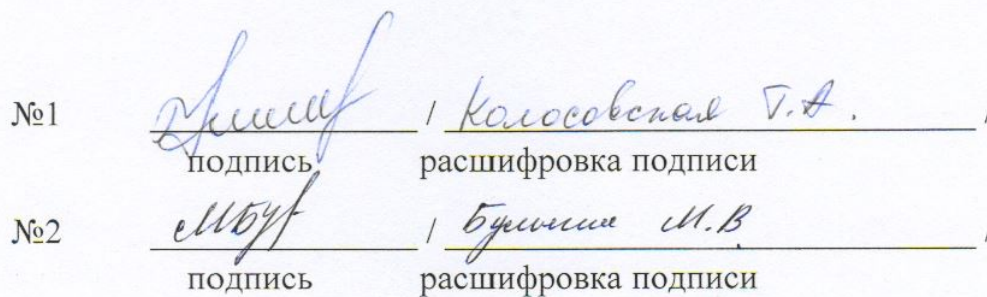 №1 / Колосовская Т.А. /
подпись расшифровка подписи
№2 МБул / М.В /
подпись расшифровка подписи